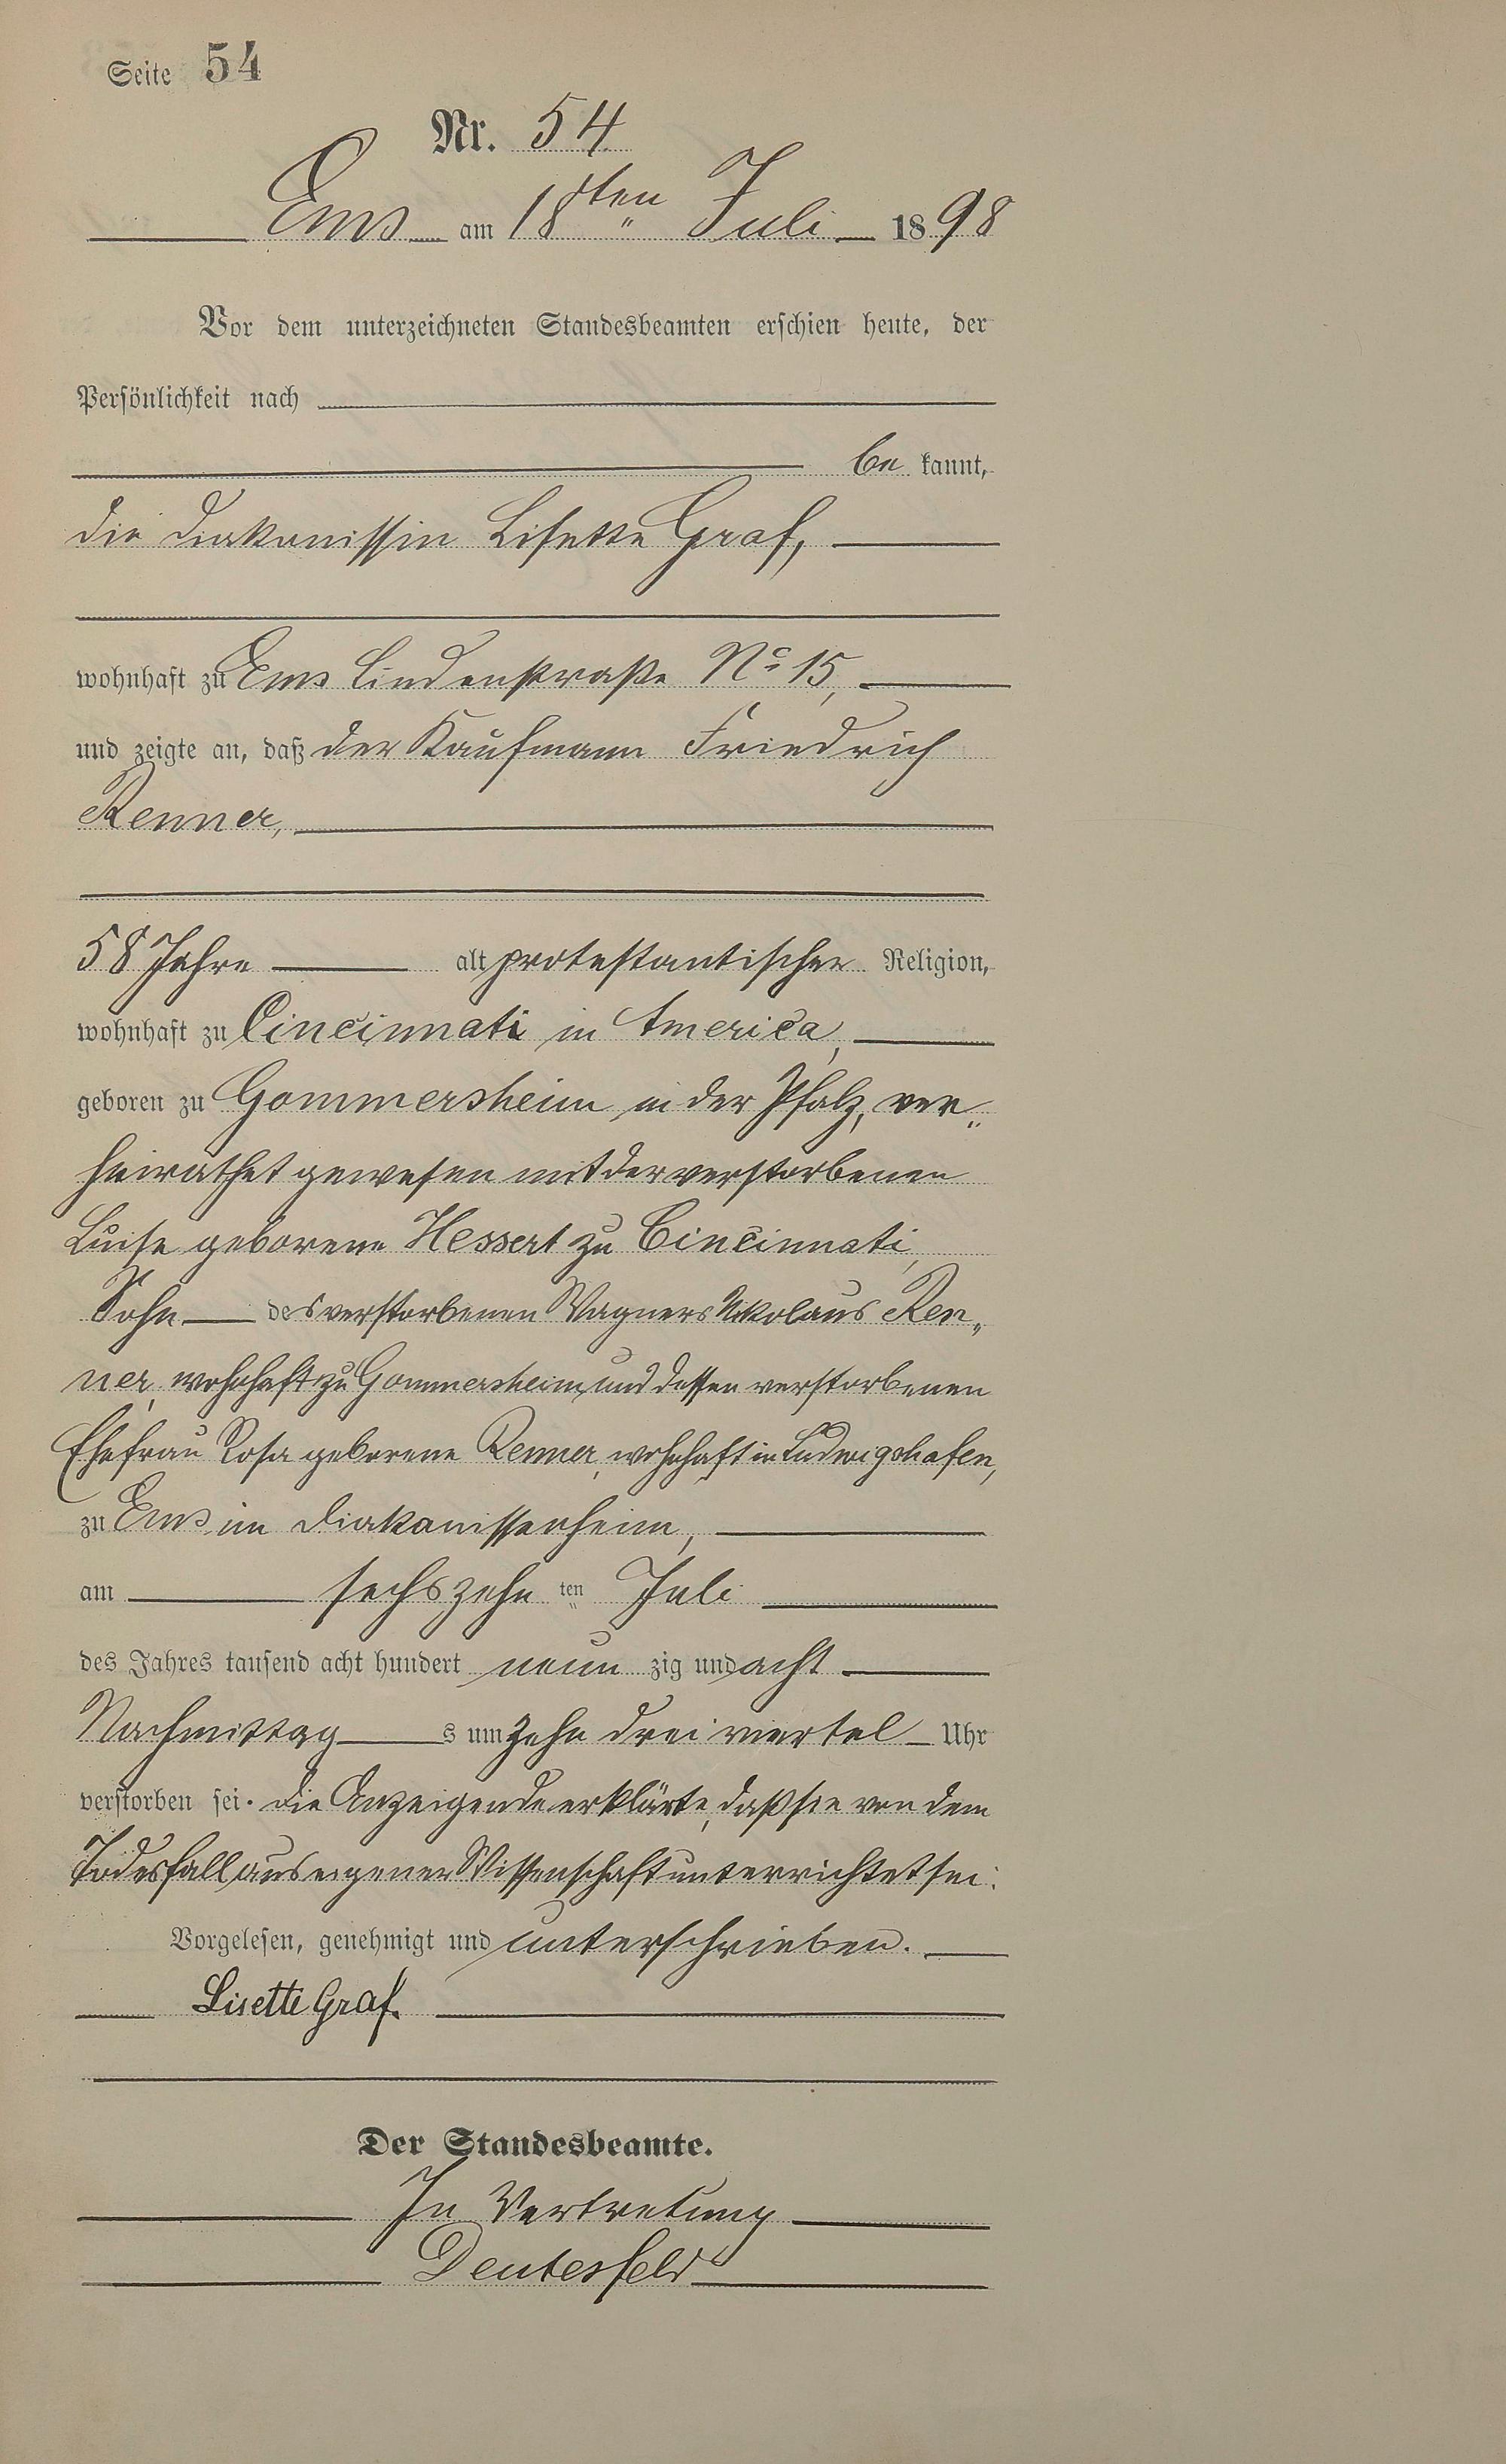 Seite 54
Nr. 54
Ems am 18ten Juli 1898
Vor dem unterzeichneten Standesbeamten erschien heute, der
Persönlichkeit nach
be kannt,
die Diakonissin Lisette Graf,
wohnhaft zu Ems Lindenstraße No 15,
und zeigte an, daß der Kaufmann Friedrich
Renner,
58 Jahre alt protestantischer Religion,
wohnhaft zu Cincinnati in America,
geboren zu Gommersheim in der Pfalz, ver„
heirathet gewesen mit der verstorbenen
Luise geborene Hessert zu Cincinnati,
Sohn des verstorbenen Wagners Nikolaus Ren„
ner, wohnhaft zu Gommersheim und dessen verstorbenen
Ehefrau Rosa geborene Renner, wohnhaft in Ludwigshafen,
zu Ems im Diakonissenheim,
am sechszehn ten Juli
des Jahres tausend acht hundert neun zig und acht
Nachmittag s um zehn drei viertel Uhr
verstorben sei. Die Anzeigende erklärte, daß sie von dem
Todesfall aus eigener Wissenschaft unterrichtet sei.
Vorgelesen, genehmigt und unterschrieben.
Lisette Graf.
Der Standesbeamte.
In Vertretung
Deutesfeld